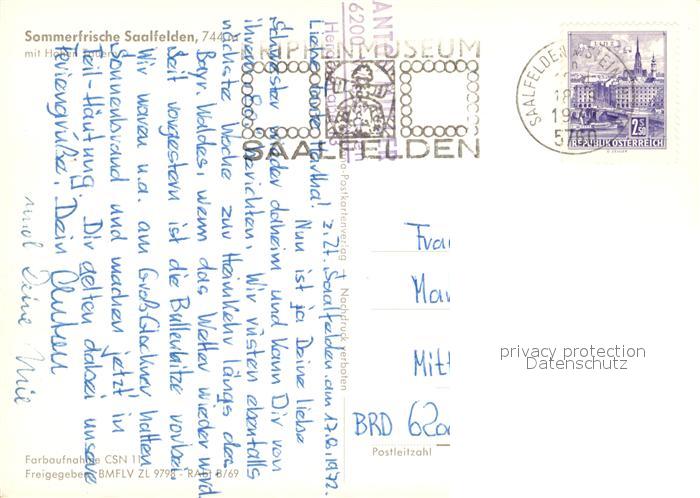 Sommerfrische Saalfelden, 744 m
mit Hohen Tauern
KRIPPENMUSEUM
SAALFELDEN
SAALFELDEN
5760
LINZ
2.50
REPUBLIK ÖSTERREICH
6200
z. Zt. Saalfelden, am 17.8.1972.
Liebe Tante Hertha!
Nun ist ja Deine liebe
Schwester wieder daheim und kann Dir von
ihrem berichten. Wir rüsten ebenfalls
nächste Woche zur Heimkehr längs des
Bayr. Waldes, wenn das Wetter wieder wird.
Seit vorgestern ist die Bullenhitze vorbei.
Wir waren u.a. am Großglockner, hatten
Sonnenbrand und machen jetzt in
Teil-Häutung. Dir gelten dabei unsere
Feriengrüße. Dein
und Deine
Postkartenverlag Nachdruck verboten
Frau
Mitt
BRD 620
Postleitzahl
privacy protection
Datenschutz
Farbaufnahme CSN 11
Freigegeben: BMFLV ZL 9798 - RAbt B/69